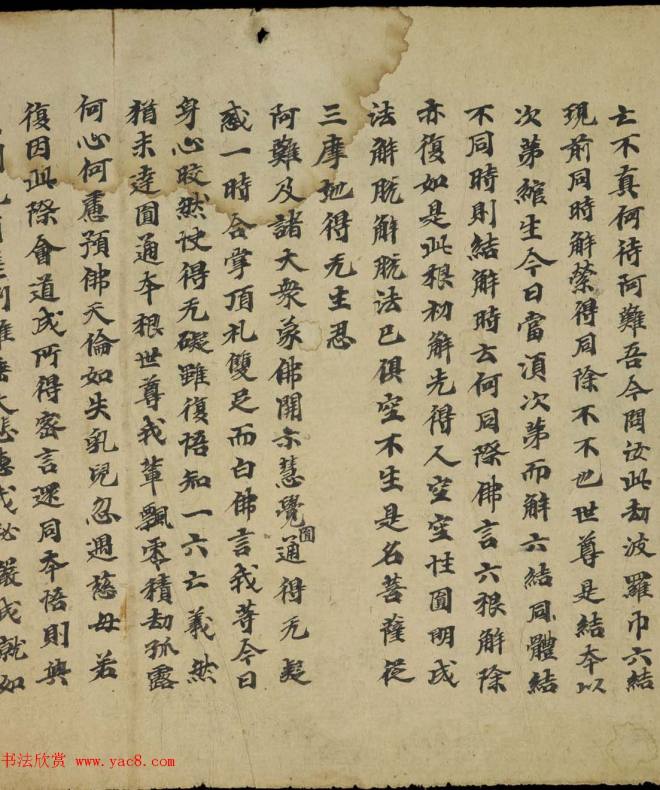 亡不真何待阿難吾今問汝此劫波羅巾六結
現前同時解縈得同除不不也世尊是結本以
次第綰生今日當須次第而解六結同體結
不同時則結解時云何同除佛言六根解除
亦復如是此根初解先得人空空性圓明成
法解脫解脫法已俱空不生是名菩薩從
三摩地得无生忍
阿難及諸大衆蒙佛開示慧覺圓通得无疑
惑一時合掌頂礼雙足而白佛言我等今日
身心皎然快得无礙雖復悟知一六亡義然
猶未達圓通本根世尊我輩飄零積劫孤露
何心何慮預佛天倫如失乳兒忽遇慈母若
復因此際會道成所得密言還同本悟則與
別惟垂大悲惠我祕嚴成就如
书法欣赏 www.yac8.com